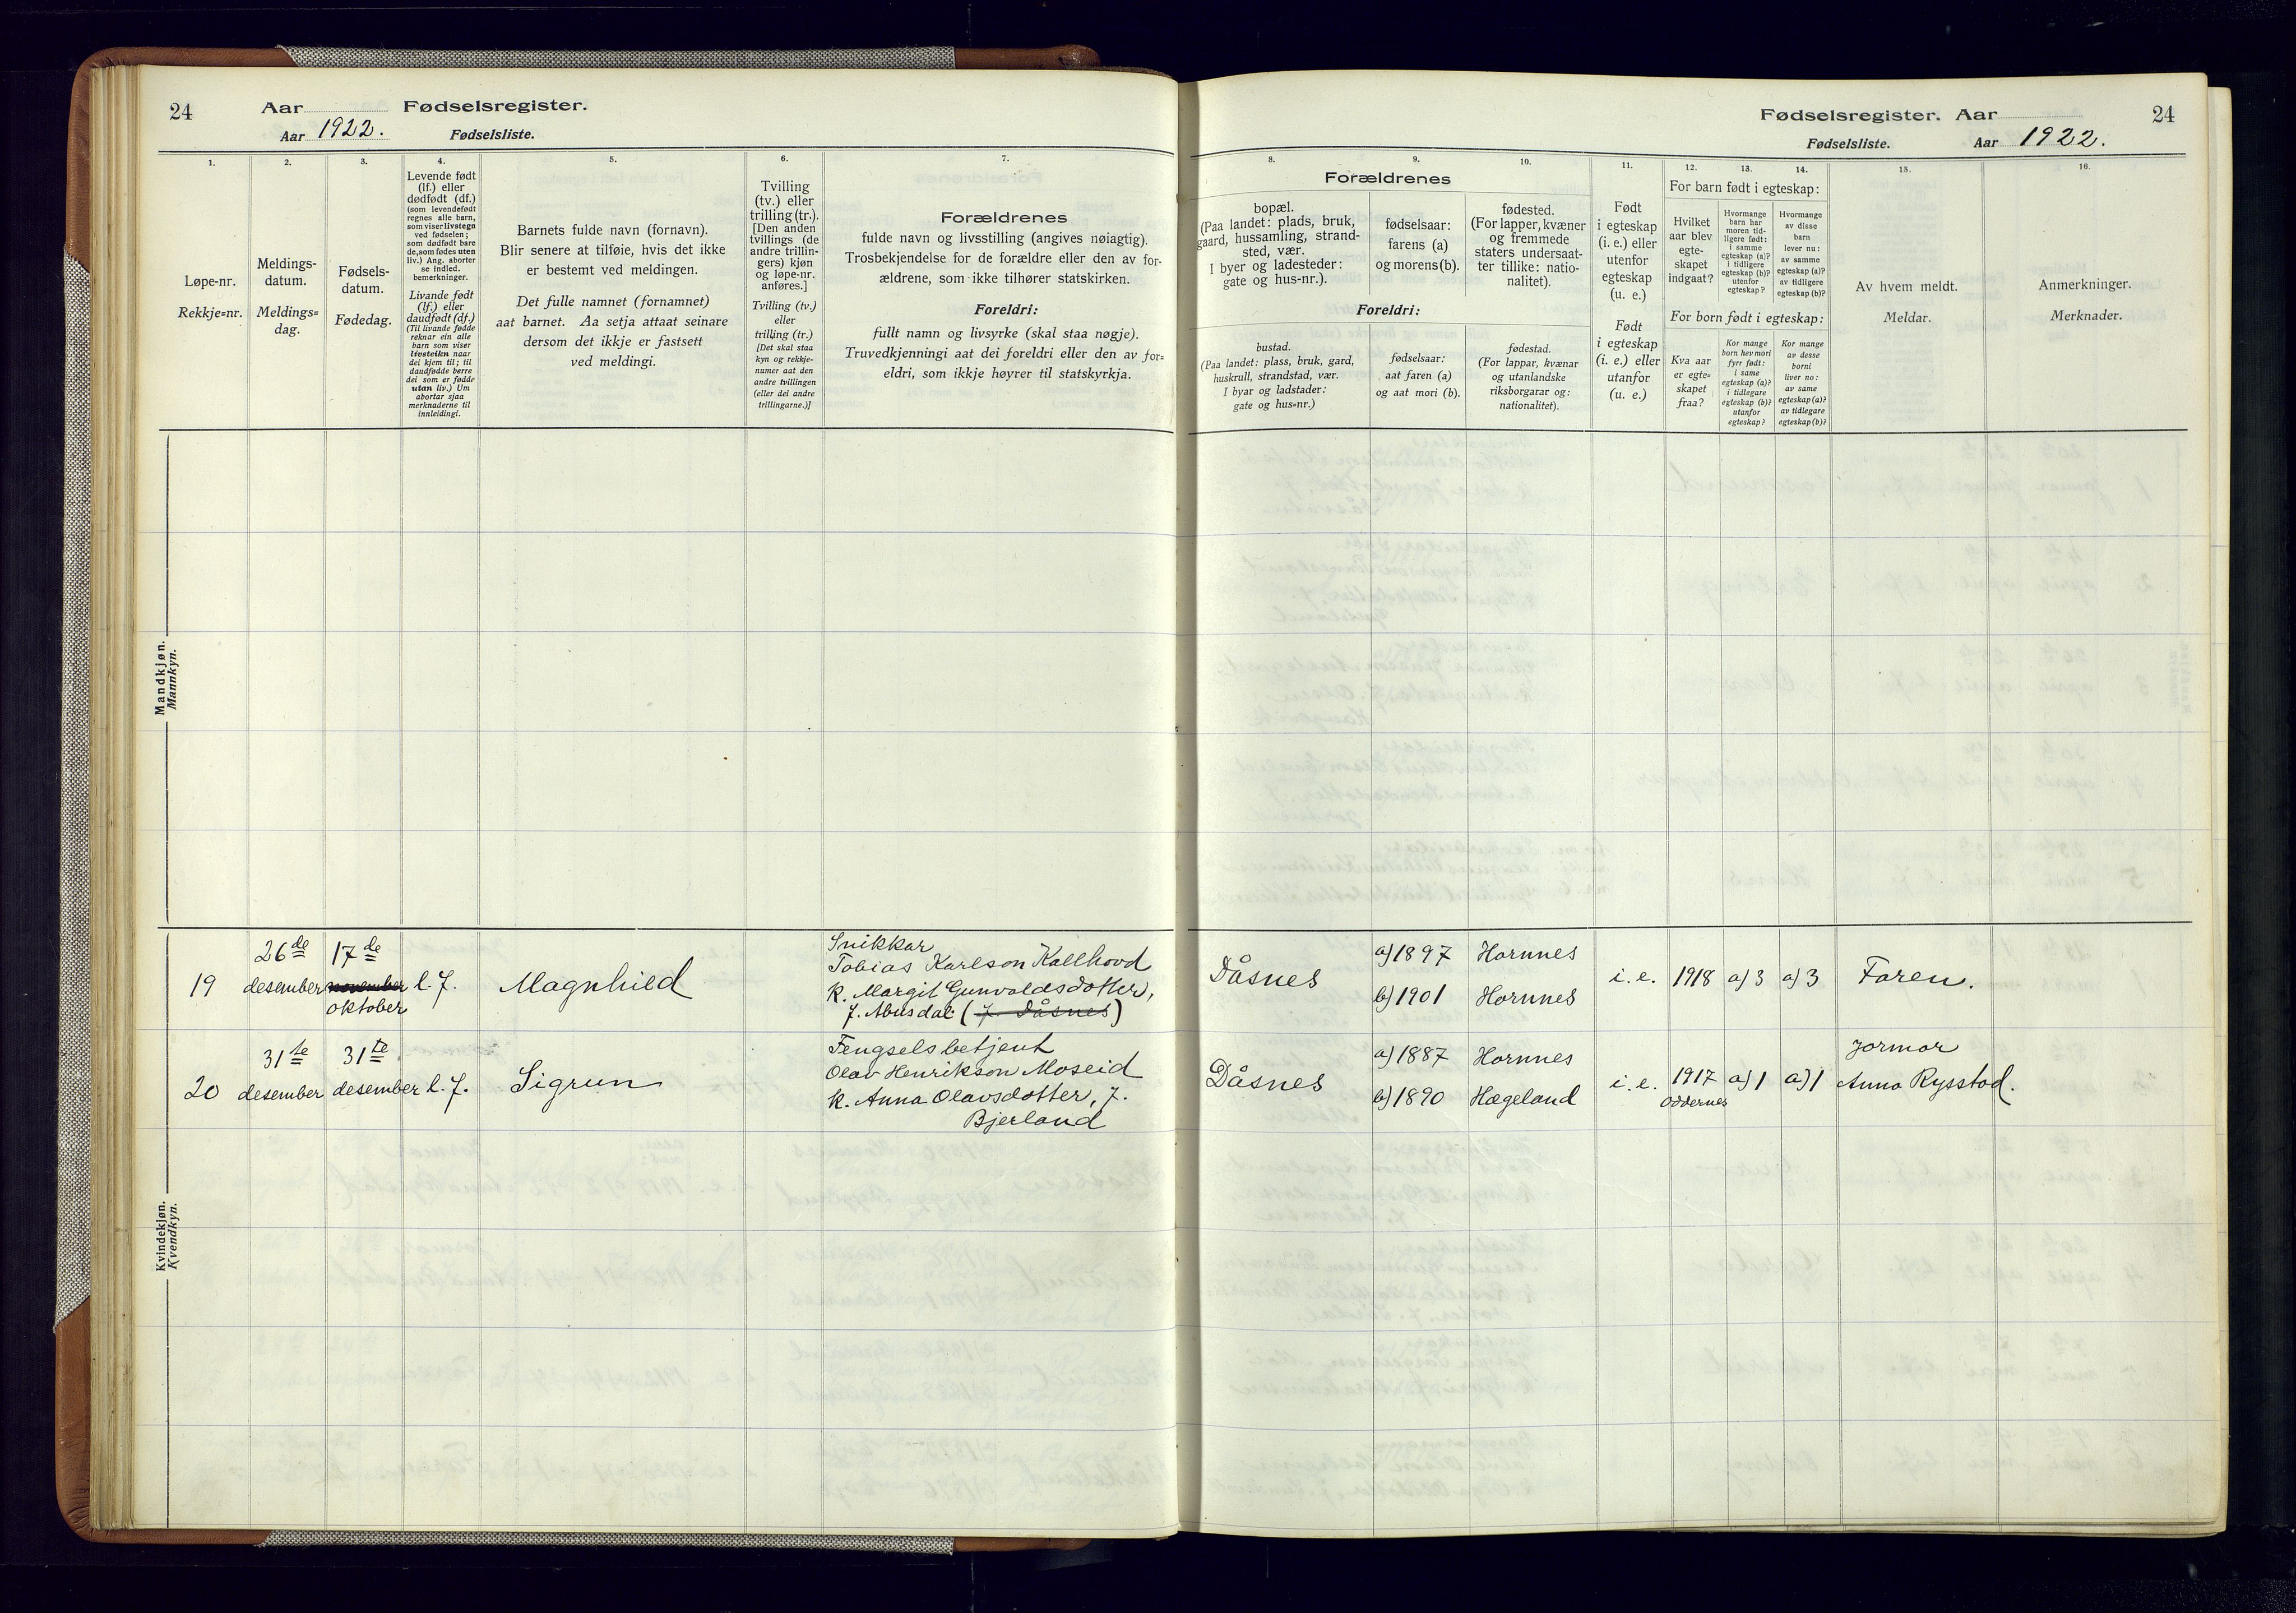 24 Aar Fødselsregister.
Aar 1922. Fødselsliste.
1.
Løpe-nr.
Rekkje=nr.
2.
Meldings-
datum.
Meldings=
dag.
3.
Fødsels-
datum.
Fødedag.
4.
Levende født
(lf.) eller
dødfødt (df.)
(som levendefødt
regnes alle barn,
som viser livstegn
ved fødselen;
som dødfødt bare
de, som fødes uten
liv.) Ang. aborter
se indled.
bemerkninger.
Livande født
(lf.) eller
daudfødt (df.)
(Til livande fødde
reknar ein alle
barn som viser
livsteikn naar
dei kjem til; til
daudfødde berre
dei som er fødde
utan liv.) Um
abortar sjaa
merknaderne til
innleidingi.
5.
Barnets fulde navn (fornavn).
Blir senere at tilføie, hvis det ikke
er bestemt ved meldingen.
Det fulle namnet (fornamnet)
aat barnet. Aa setja attaat seinare
dersom det ikkje er fastsett
ved meldingi.
6.
Tvilling
(tv.) eller
trilling (tr.).
[Den anden
tvillings (de
andre trillin-
gers) kjøn
og løpe-nr.
anføres.]
Tvilling (tv.)
eller
trilling (tr.)
[Det skal staa
kyn og rekkje-
numer aat den
andre tvillingen
(eller dei andre
trillingarne.)]
7.
Forældrenes
fulde navn og livsstilling (angives nøiagtig).
Trosbekjendelse for de forældre eller den av for-
ældrene, som ikke tilhører statskirken.
Foreldri:
fullt namn og livsyrke (skal staa nøgje).
Truvedkjenningi aat dei foreldri eller den av for=
eldri, som ikkje høyrer til statskyrkja.
Mandkjøn.
Mannkyn.
19
26de
desember
17de
november
oktober
l. f.
Magnhild
Snikkar
Tobias Karlson Kallhovd
k. Margit Gunvaldsdotter,
f. Abusdal (f. Dåsnes)
20
31te
desember
31te
desember
l. f.
Sigrun
Fengselsbetjent
Olav Henrikson Moseid
k. Anna Olavsdotter, f.
Bjerland
Kvindekjøn.
Kvendkyn.
Fødselsregister. Aar 24
Fødselsliste. Aar 1922.
8.
Forældrenes
bopæl.
(Paa landet: plads, bruk,
gaard, hussamling, strand-
sted, vær.
I byer og ladesteder:
gate og hus-nr.).
Foreldri:
bustad.
(Paa landet: plass, bruk, gard,
huskrull, strandstad, vær.
I byar og ladstader:
gate og hus=nr.)
9.
fødselsaar:
farens (a)
og morens (b).
fødselsaar:
aat faren (a)
og aat mori (b).
10.
fødested.
(For lapper, kvæner
og fremmede
staters undersaat-
ter tillike: natio-
nalitet).
fødestad.
(For lappar, kvænar
og utanlandske
riksborgarar og:
nationalitet).
11.
Født
i egteskap
(i. e.) eller
utenfor
egteskap
(u. e.)
Født
i egteskap
(i. e.) eller
utanfor
(u. e.)
12. 13. 14.
For barn født i egteskap:
Hvilket
aar blev
egte-
skapet
indgaat?
Hvormange
barn har
moren tid-
ligere født:
i samme
egteskap (a)?
i tidligere
egteskap (b)?
utenfor
egteskap?
Hvormange
av disse
barn
lever nu:
av samme
egteskap (a)?
av tidligere
egteskap (b)?
For born født i egteskap:
Kva aar
er egte=
skapet
fraa?
Kor mange
born hev mori
fyrr født:
i same
egteskap (a)?
i tidlegare
egteskap (b)?
utanfor
egteskap?
Kor mange
av desse
borni
liver no:
av same
egteskap (a)?
av tidlegare
egteskap (b)?
15.
Av hvem meldt.
Meldar.
16.
Anmerkninger.
Merknader.
Dåsnes
a) 1897 Hornnes
b) 1901 Hornnes
i. e. 1918 a) 3 a) 3 Faren.
Dåsnes
a) 1887 Hornnes
b) 1890 Hægeland
i. e. 1917 a) 1 a) 1
Oddernes
Jormor
Anna Rysstad.